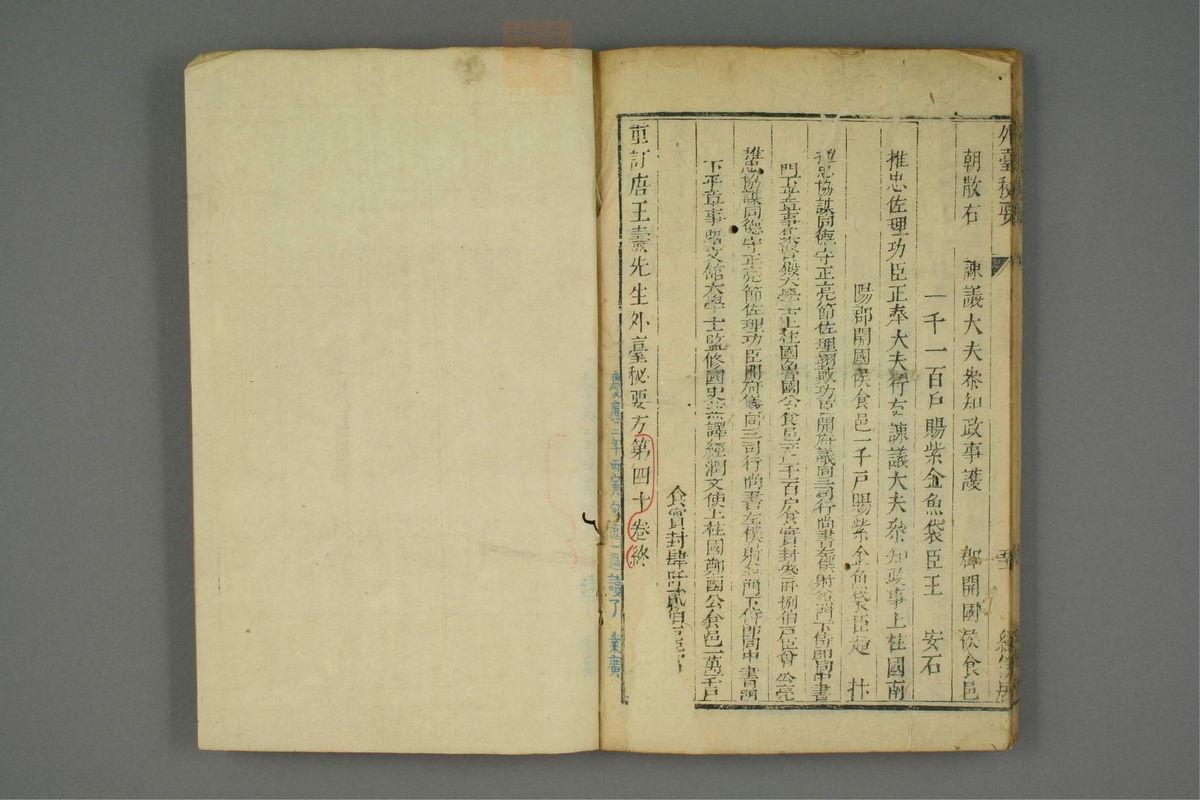 外臺秘要
朝散右　諫議大夫叅知政事護　郡開國侯食邑
一千一百戶賜紫金魚袋臣王　安石
推忠佐理功臣正奉大夫行右諫議大夫叅知政事上柱國南
陽郡開國侯食邑一千戶賜紫金魚袋臣趙　抃
推忠協謀同德守正亮節佐理翊戴功臣開府儀同三司行尚書左僕射兼門下侍郎同中書
門下平章事集賢殿大學士上柱國魯國公食邑 千 百戶食實封 阡捌伯戶臣曾　公亮
推忠協謀同德守正亮節佐理功臣開府儀同三司行尚書左僕射兼門下侍郎同中書門
下平章事昭文館大學士監修國史兼譯經潤文使上柱國鄭國公食邑一萬 千戶
食實封肆阡貳伯戶臣富
重訂唐王燾先生外臺秘要方第四十卷終
慶應二年 寅 讀了 業廣